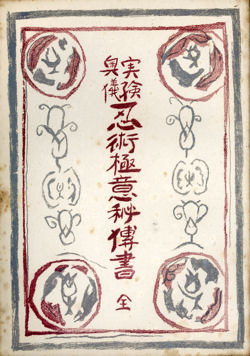 実験
奥儀
忍術極意秘傳書
全